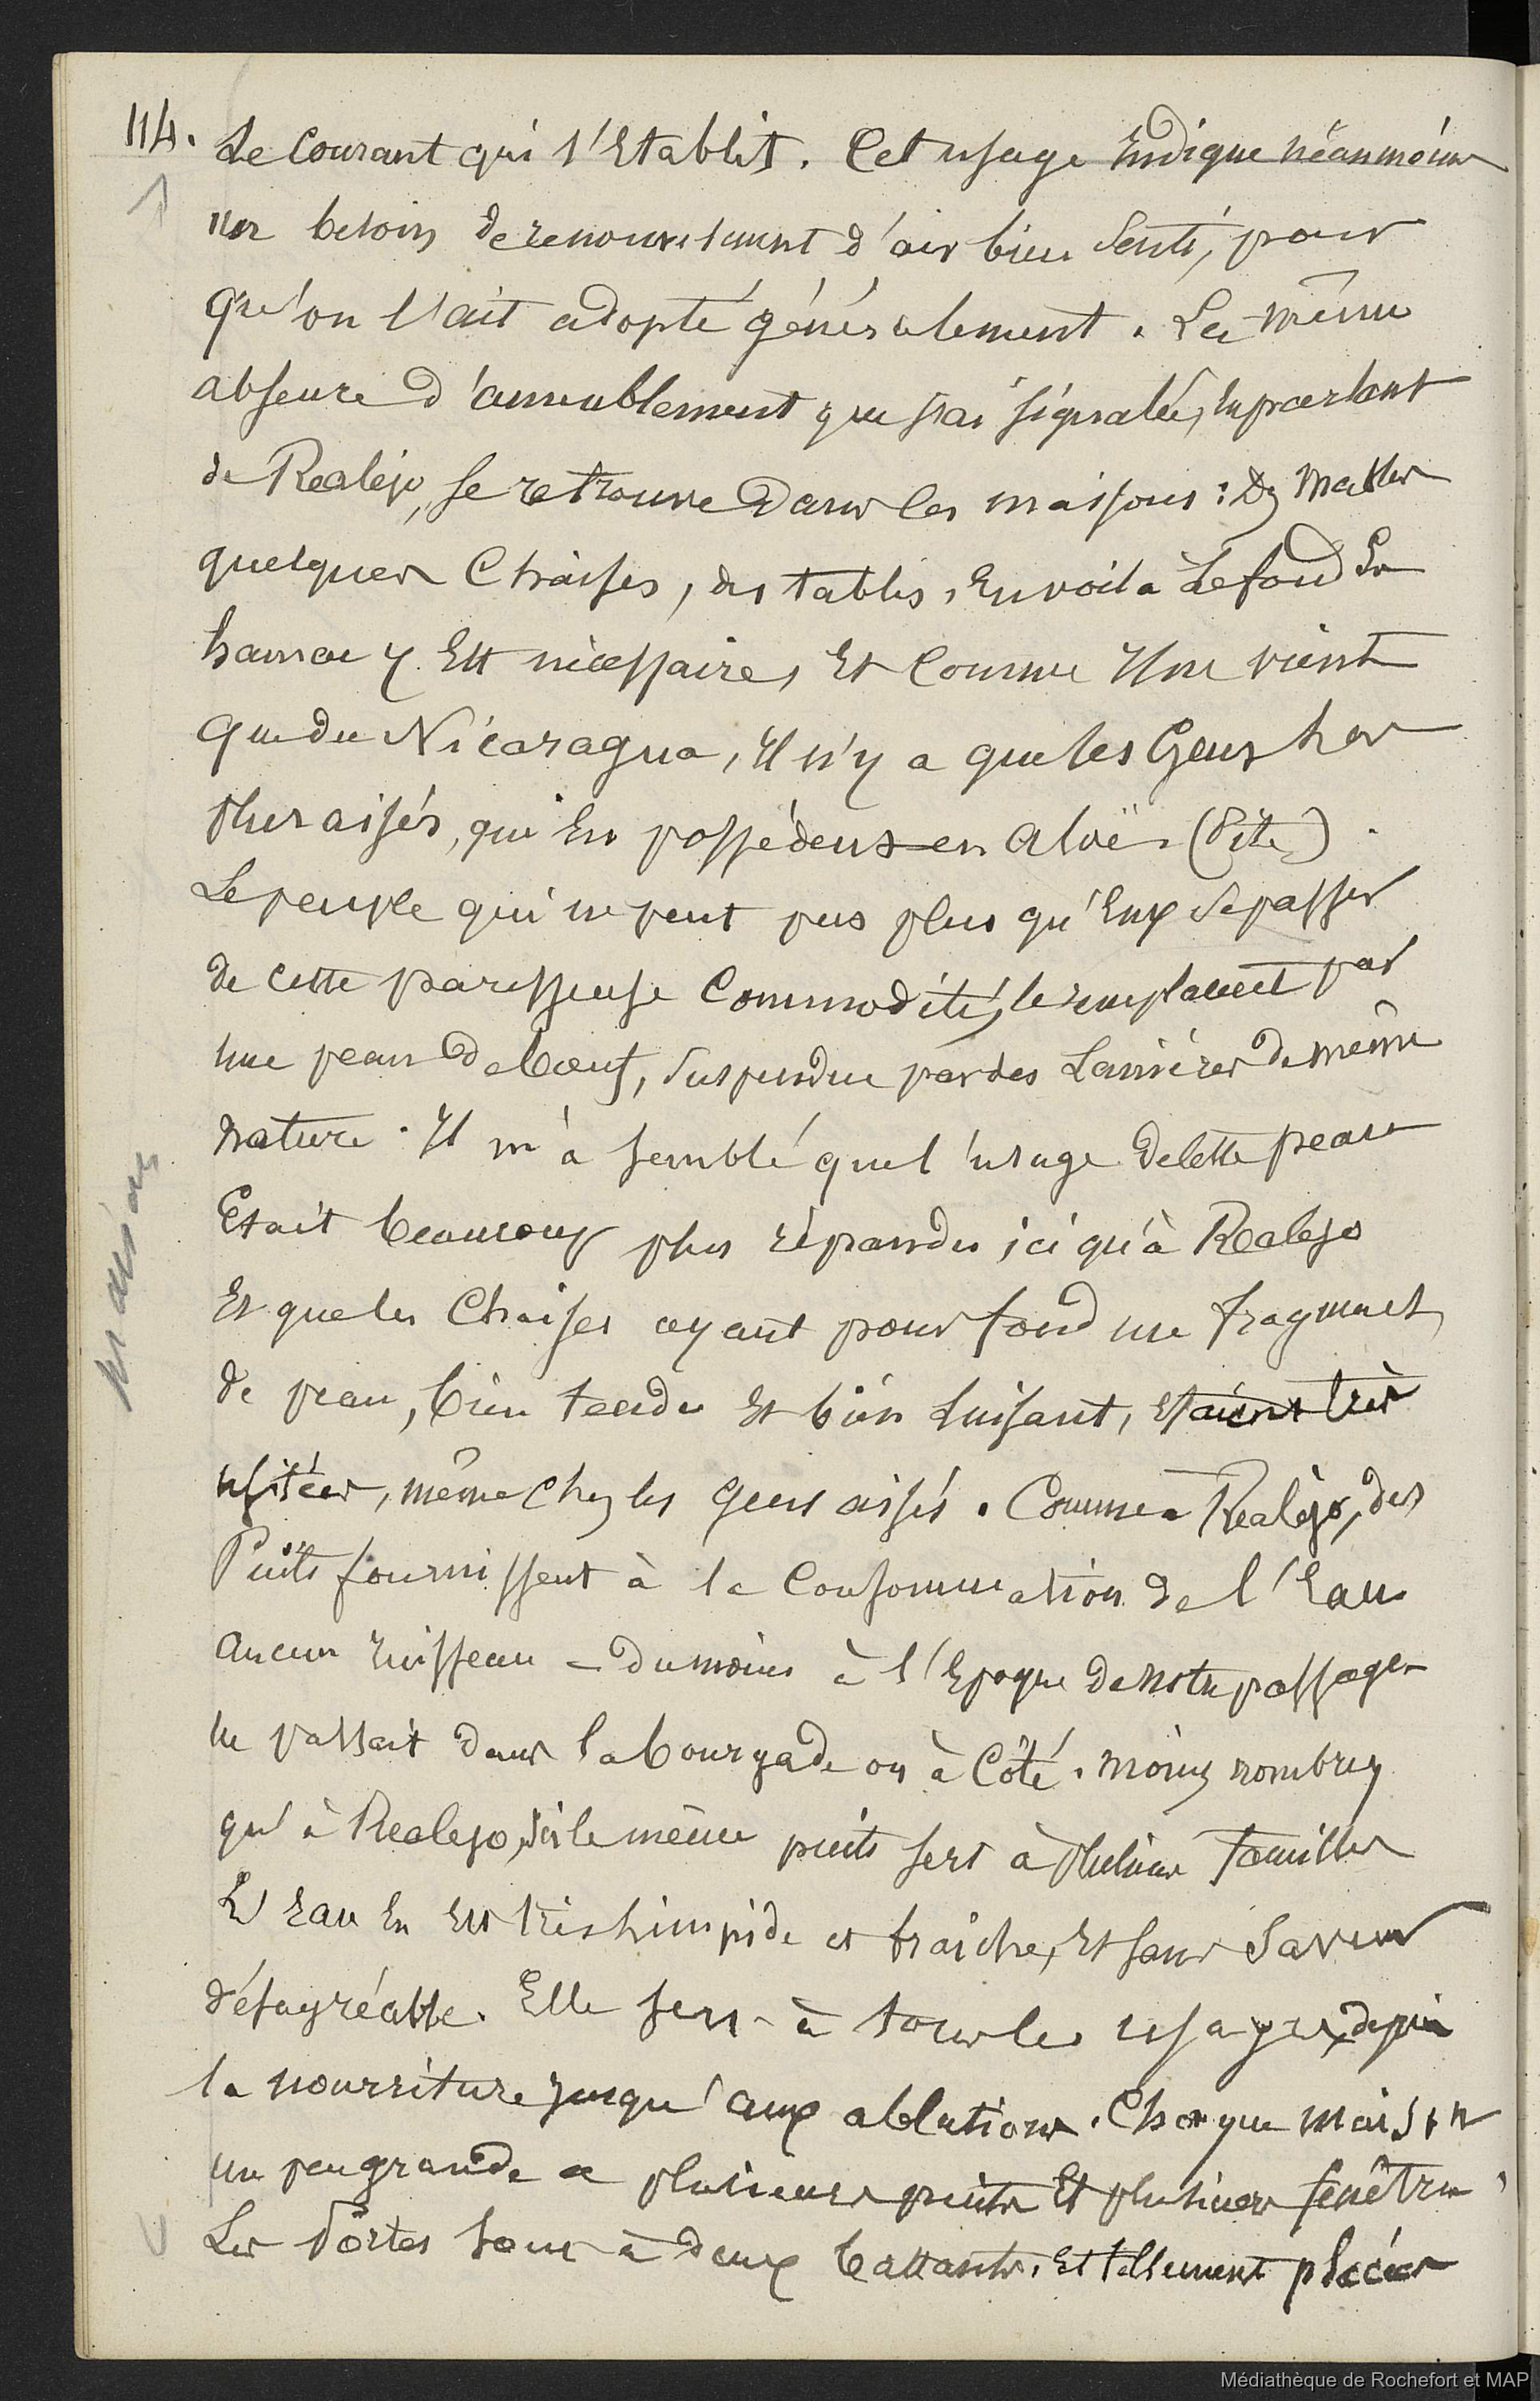 114. Le Courant qui s'Etablit. Cet usage Indique néanmoins
un besoin de renouvelement d'air bien senti, pour
qu'on l'ait adopté généralement. La même
absence d'ameublement que j'ai signalée, en parlant
de Realejo, se retrouve dans les maisons :
quelques Chaises, des tables, En voilà Le fond Un
hamac y Est nécessaire, Et Comme Il ne vient
que du Nicaragua, Il n'y a que les Gens les
plus aisés, qui En possèdent en aloës (Pite).
Le peuple qui ne peut pas plus qu'Eux se passer
de cette paresseuse Commodité, le remplacent par
une peau de bœuf, suspendue par des Lanières de même
nature. Il m'a semblé que l'usage de cette peau
Etait beaucoup plus répandu ici qu'à Realejo
Et que les Chaises ayant pour fond un fragment
de peau, bien tendu Et bien Luisant, Etaient très
usitées, même chez les Gens aisés. Comme à Realejo, des
Puits fournissent à la Consommation de l'Eau
Aucun Ruisseau - du moins à l'Epoque de notre passage -
ne passait dans la bourgade ou à Côté. moins nombreux
qu'à Realejo, ici le même puits sert à plusieurs familles
L'Eau En Est très limpide et fraîche, Et sans Saveur
désagréable. Elle sert à tous les usages, depuis
la nourriture jusqu'aux ablutions. Chaque maison
un peu grande a plusieurs portes Et plusieurs fenêtres,
Les Portes sont à deux battants, Et tellement placées
maisons